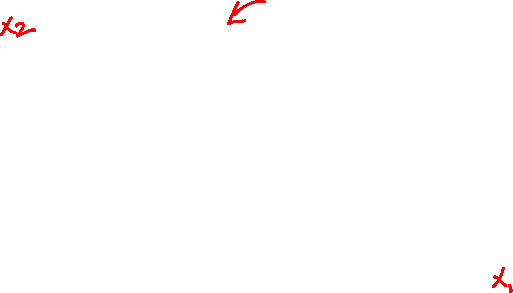 x2
x1